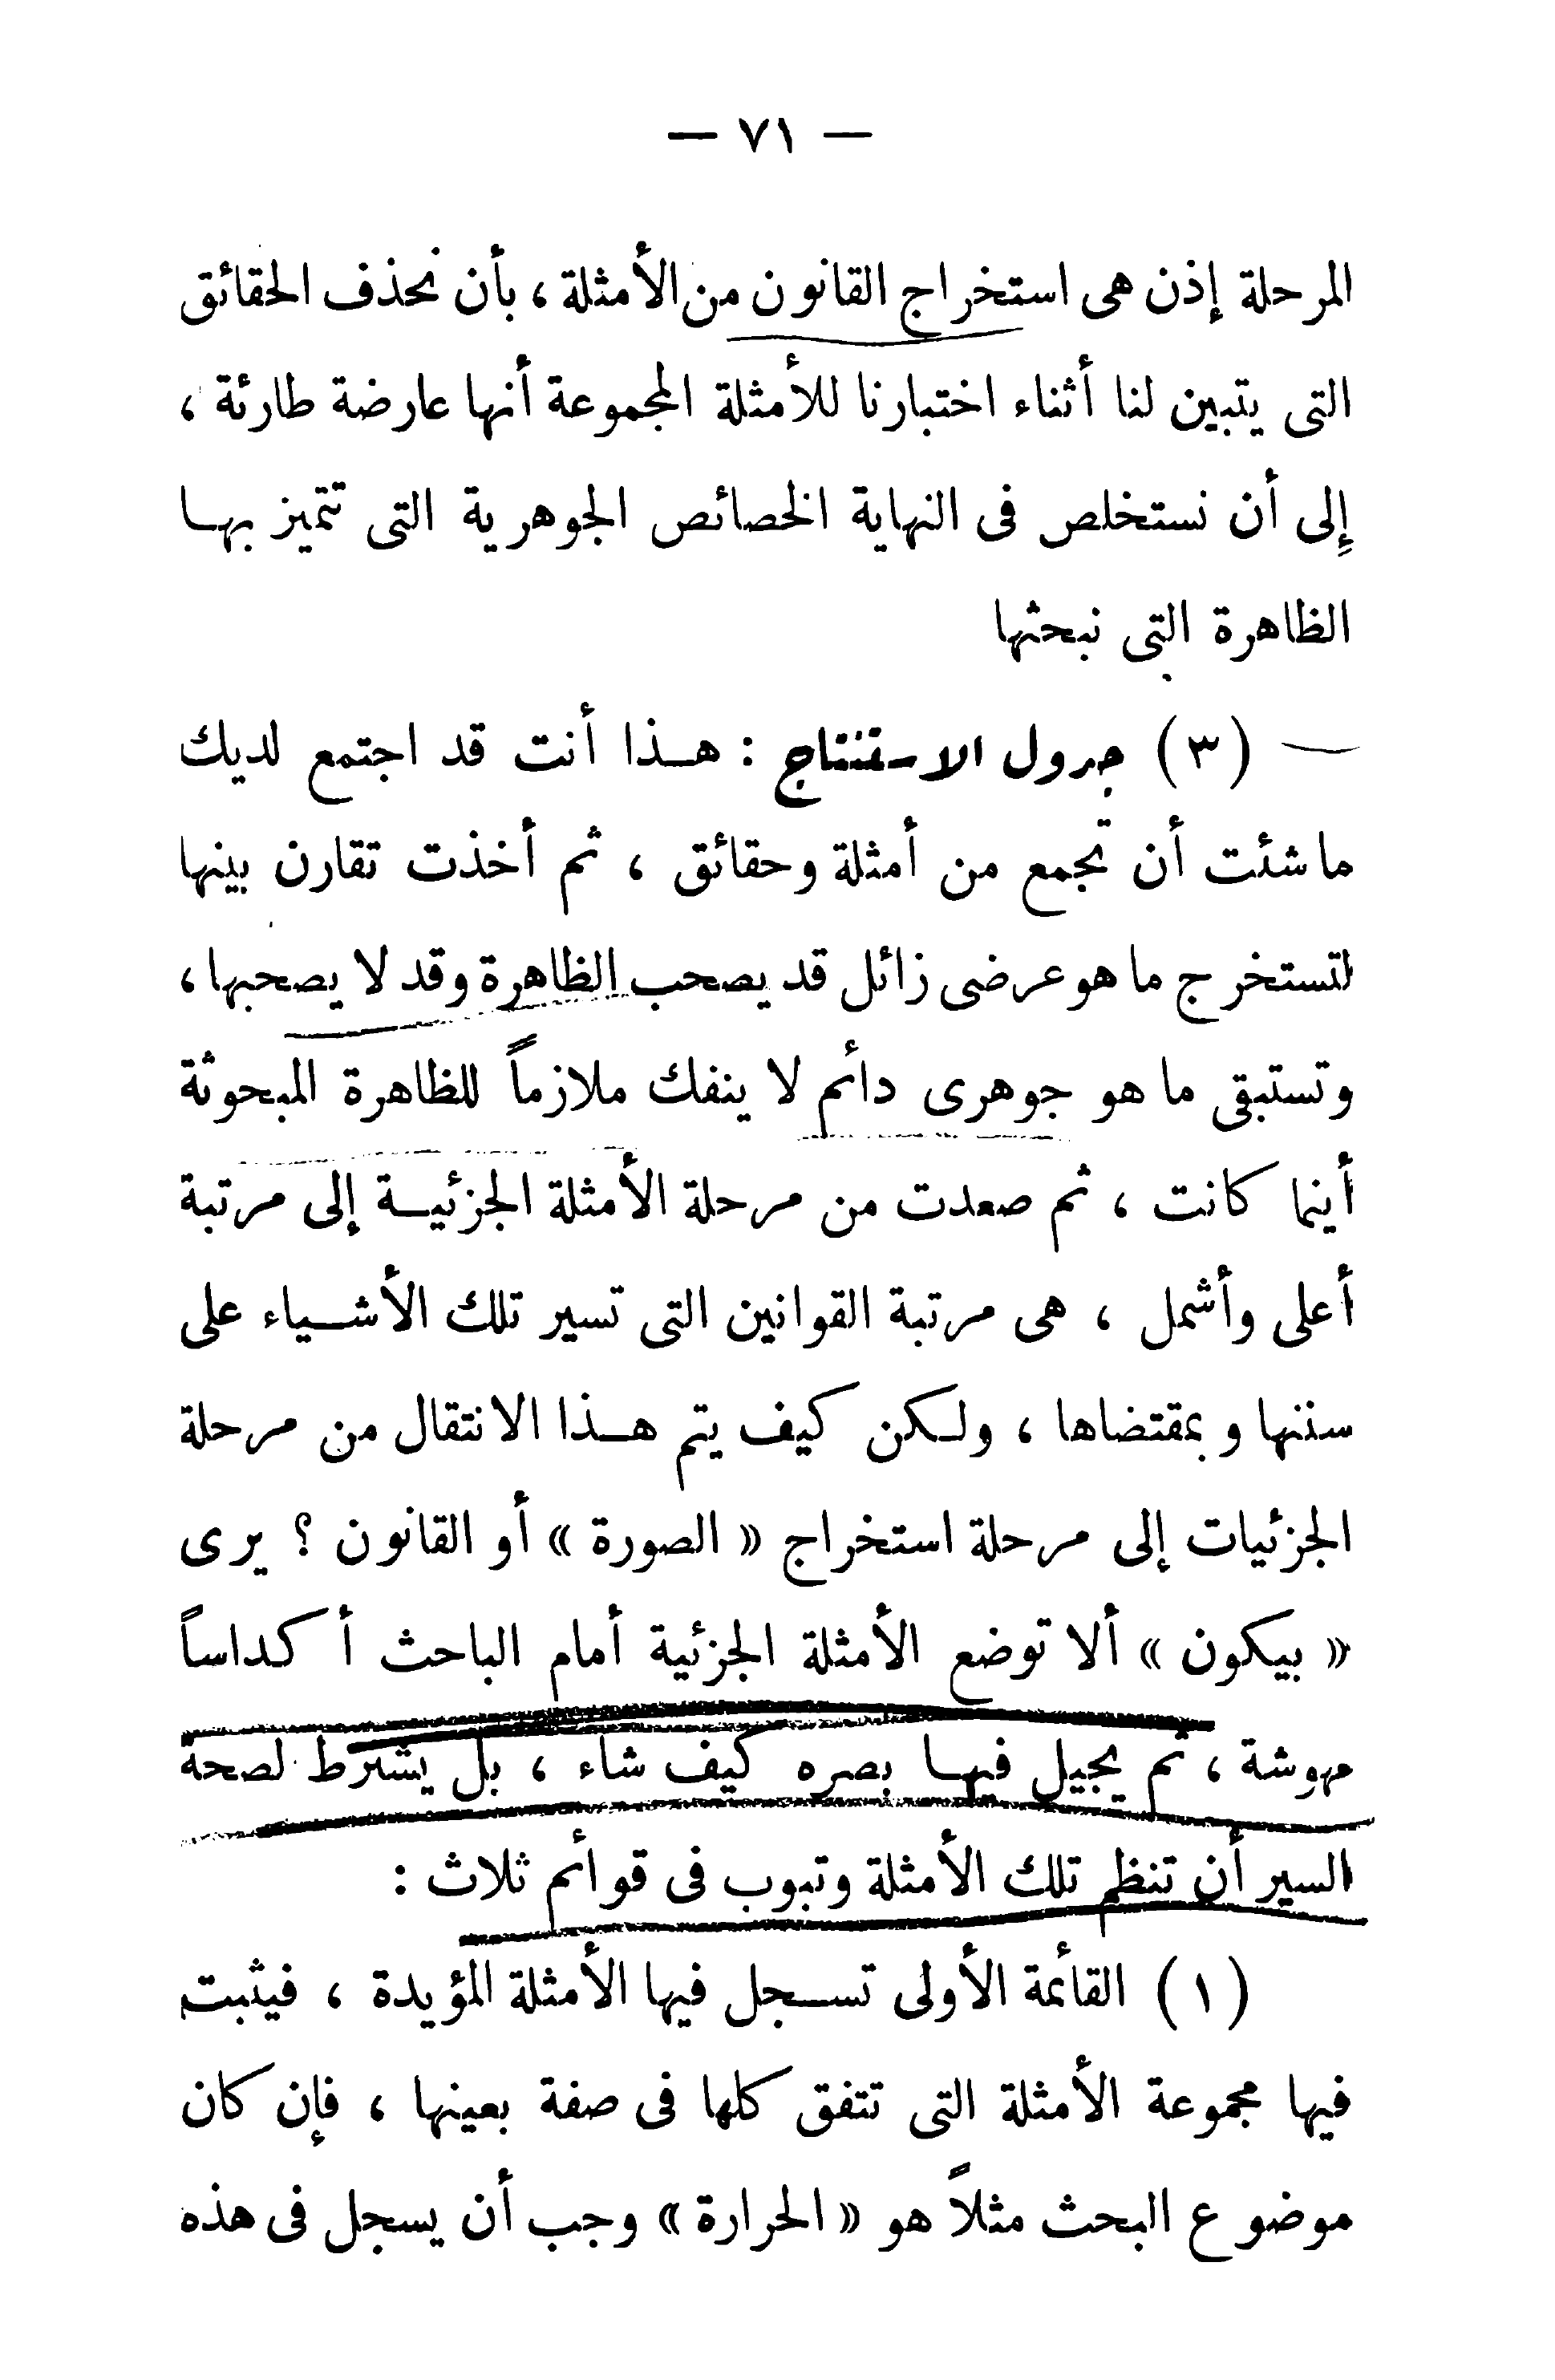 — ٧١ —
المرحلة إذن هى استخراج القانون من الأمثلة ، بأن نحذف الحقائق
التى يتبين لنا أثناء اختبارنا للأمثلة المجموعة أنها عارضة طارئة ،
إلى أن نستخلص فى النهاية الخصائص الجوهرية التى تتميز بها
الظاهرة التى نبحثها
(٣) جدول الاستنتاج : هذا أنت قد اجتمع لديك
ما شئت أن تجمع من أمثلة وحقائق ، ثم أخذت تقارن بينها
لتستخرج ما هو عرضى زائل قد يصحب الظاهرة وقد لا يصحبها ،
وتستبقى ما هو جوهرى دائم لا ينفك ملازماً للظاهرة المبحوثة
أينما كانت ، ثم صعدت من مرحلة الأمثلة الجزئية إلى مرتبة
أعلى وأشمل ، هى مرتبة القوانين التى تسير تلك الأشياء على
سننها وبمقتضاها ، ولكن كيف يتم هذا الانتقال من مرحلة
الجزئيات إلى مرحلة استخراج « الصورة » أو القانون ؟ يرى
« بيكون » ألا توضع الأمثلة الجزئية أمام الباحث أكداساً
مهوشة ، ثم يجيل فيها بصره كيف شاء ، بل يشترط لصحة
السير أن تنظم تلك الأمثلة وتبوب فى قوائم ثلاث :
(١) القائمة الأولى تسجل فيها الأمثلة المؤيدة ، فيثبت
فيها مجموعة الأمثلة التى تتفق كلها فى صفة بعينها ، فإن كان
موضوع البحث مثلاً هو « الحرارة » وجب أن يسجل فى هذه